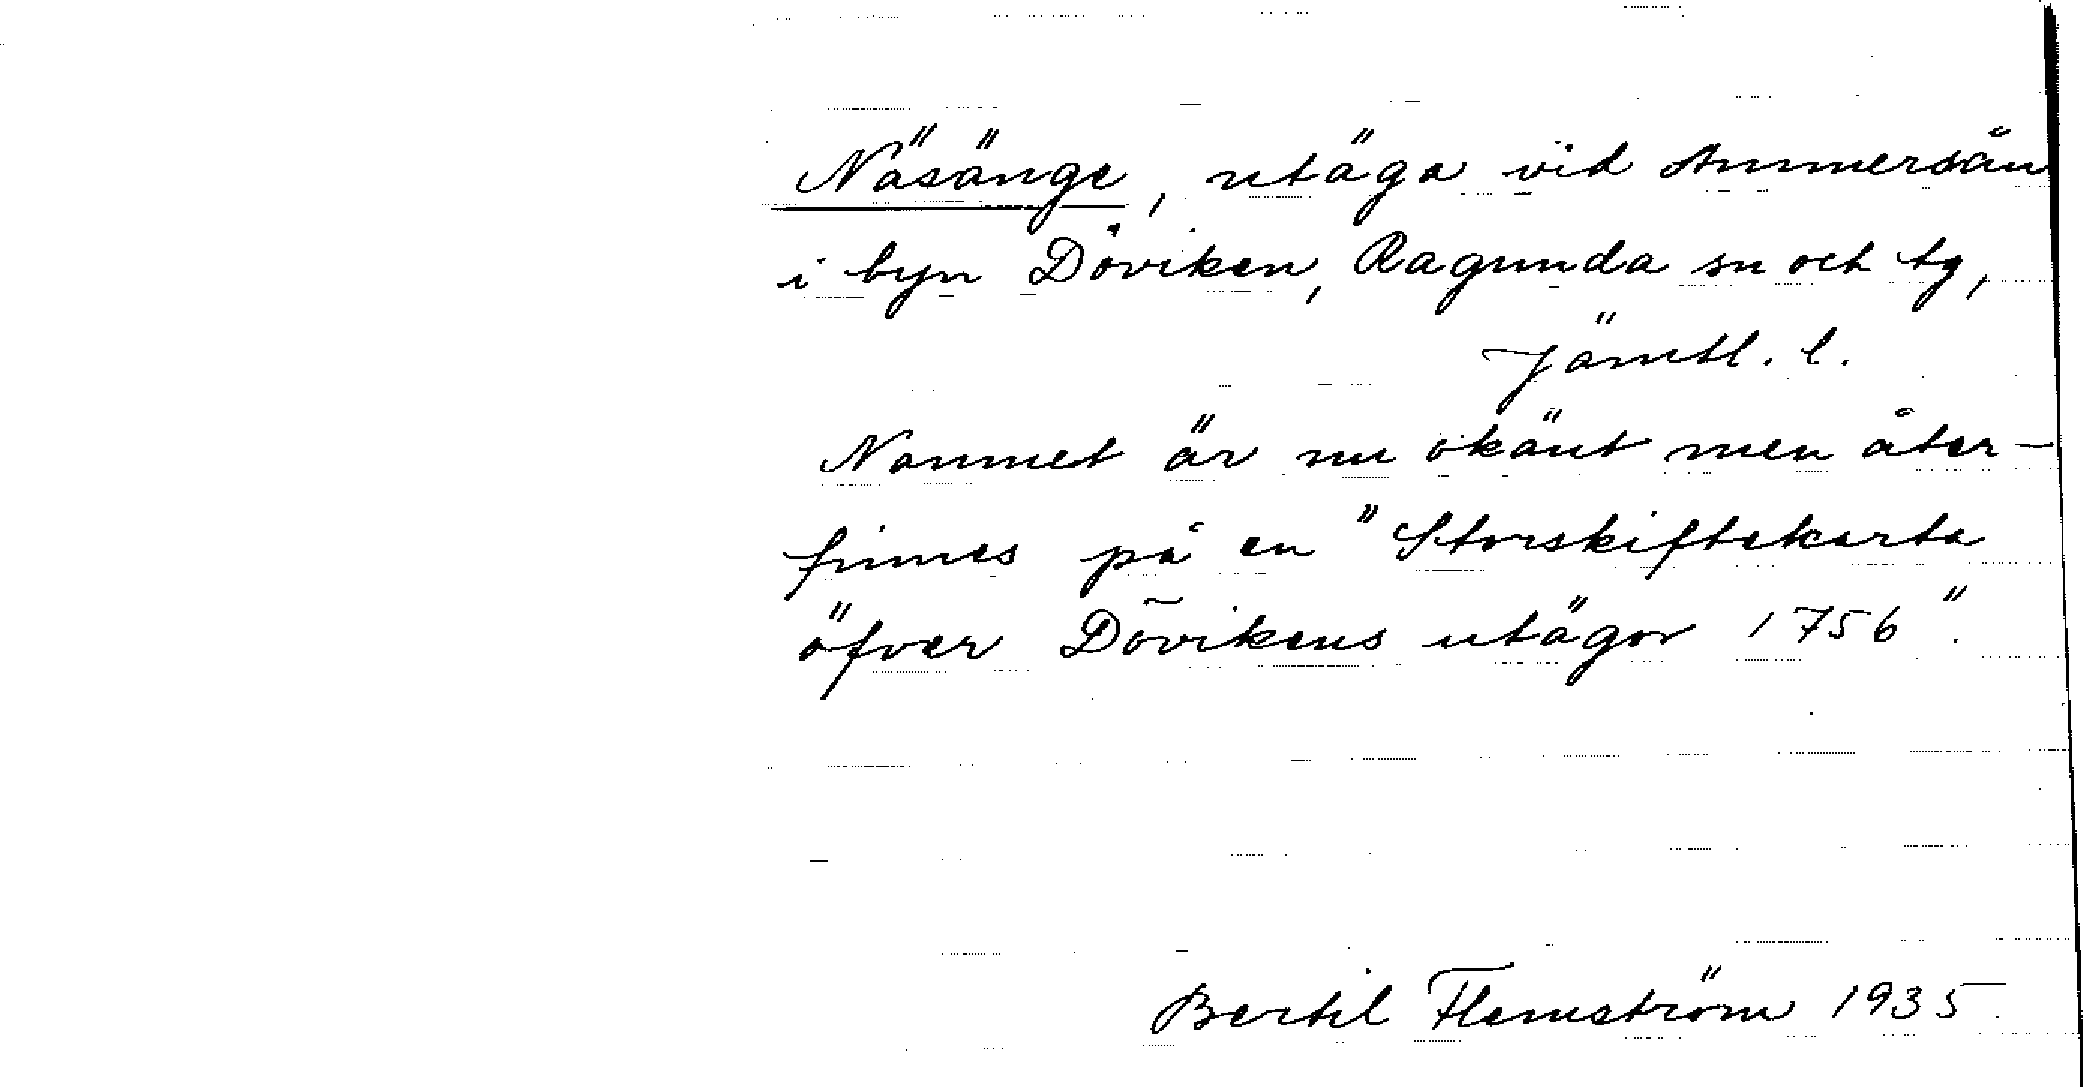 Näsänge, utäga vid Ammersån
i byn Döviken, Ragunda sn och tg,
Jämtl. l.
Namnet är nu okänt men åter-
finnes på en "Storskiftskarta
öfver Dövikens utägor 1756".
Bertil Flemström 1935